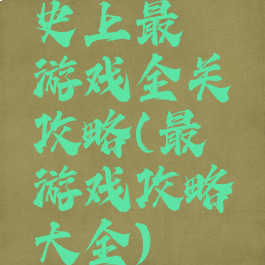 史上最
游戏全关
攻略(最
游戏攻略
大全)